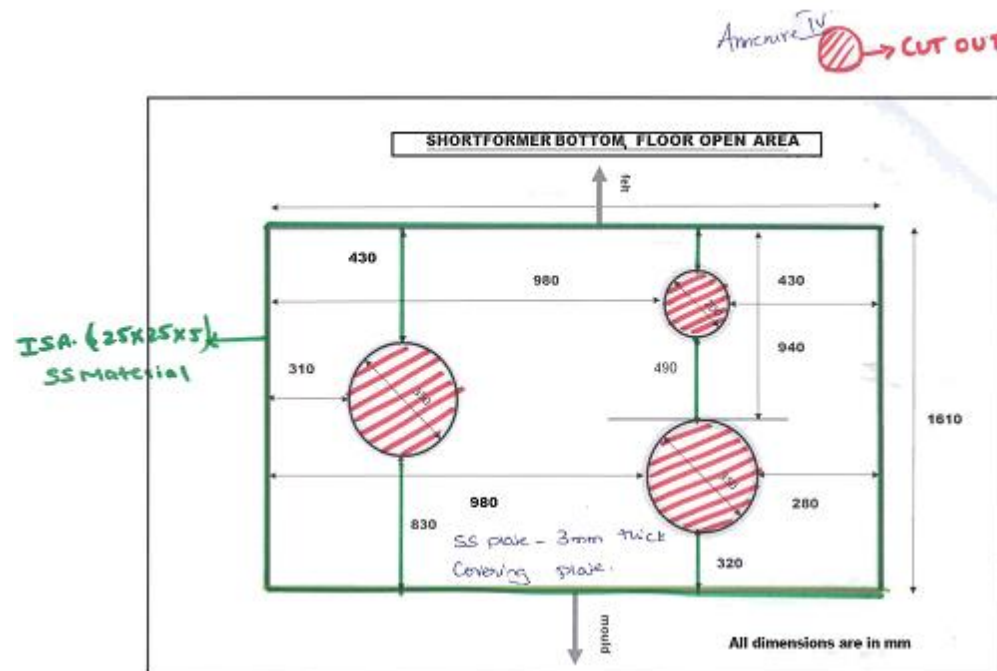 Annexure IV
CUT OUT
SHORTFORMER BOTTOM, FLOOR OPEN AREA
felt
430
980
430
ISA. (25X25X5)
SS Material
310
490
940
350
1610
980
280
830
SS plate - 3mm thick
Covering plate.
320
mould
All dimensions are in mm